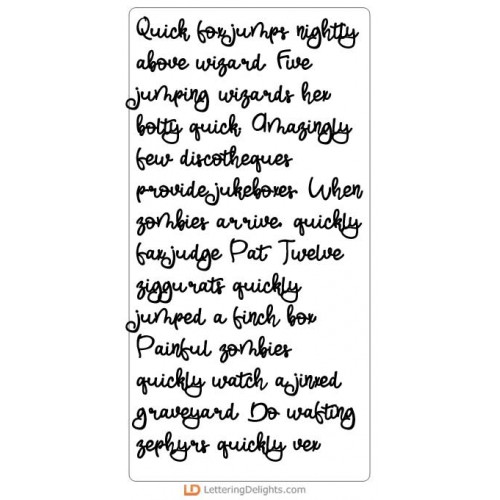 Quick fox jumps nightly
above wizard. Five
jumping wizards hex
bolty quick. Amazingly
few discotheques
provide jukeboxes. When
zombies arrive. quickly
fax judge Pat. Twelve
ziggurats quickly
jumped a finch box
Painful zombies
quickly watch a jinxed
graveyard. Do wafting
zephyrs quickly vex
LD LetteringDelights.com